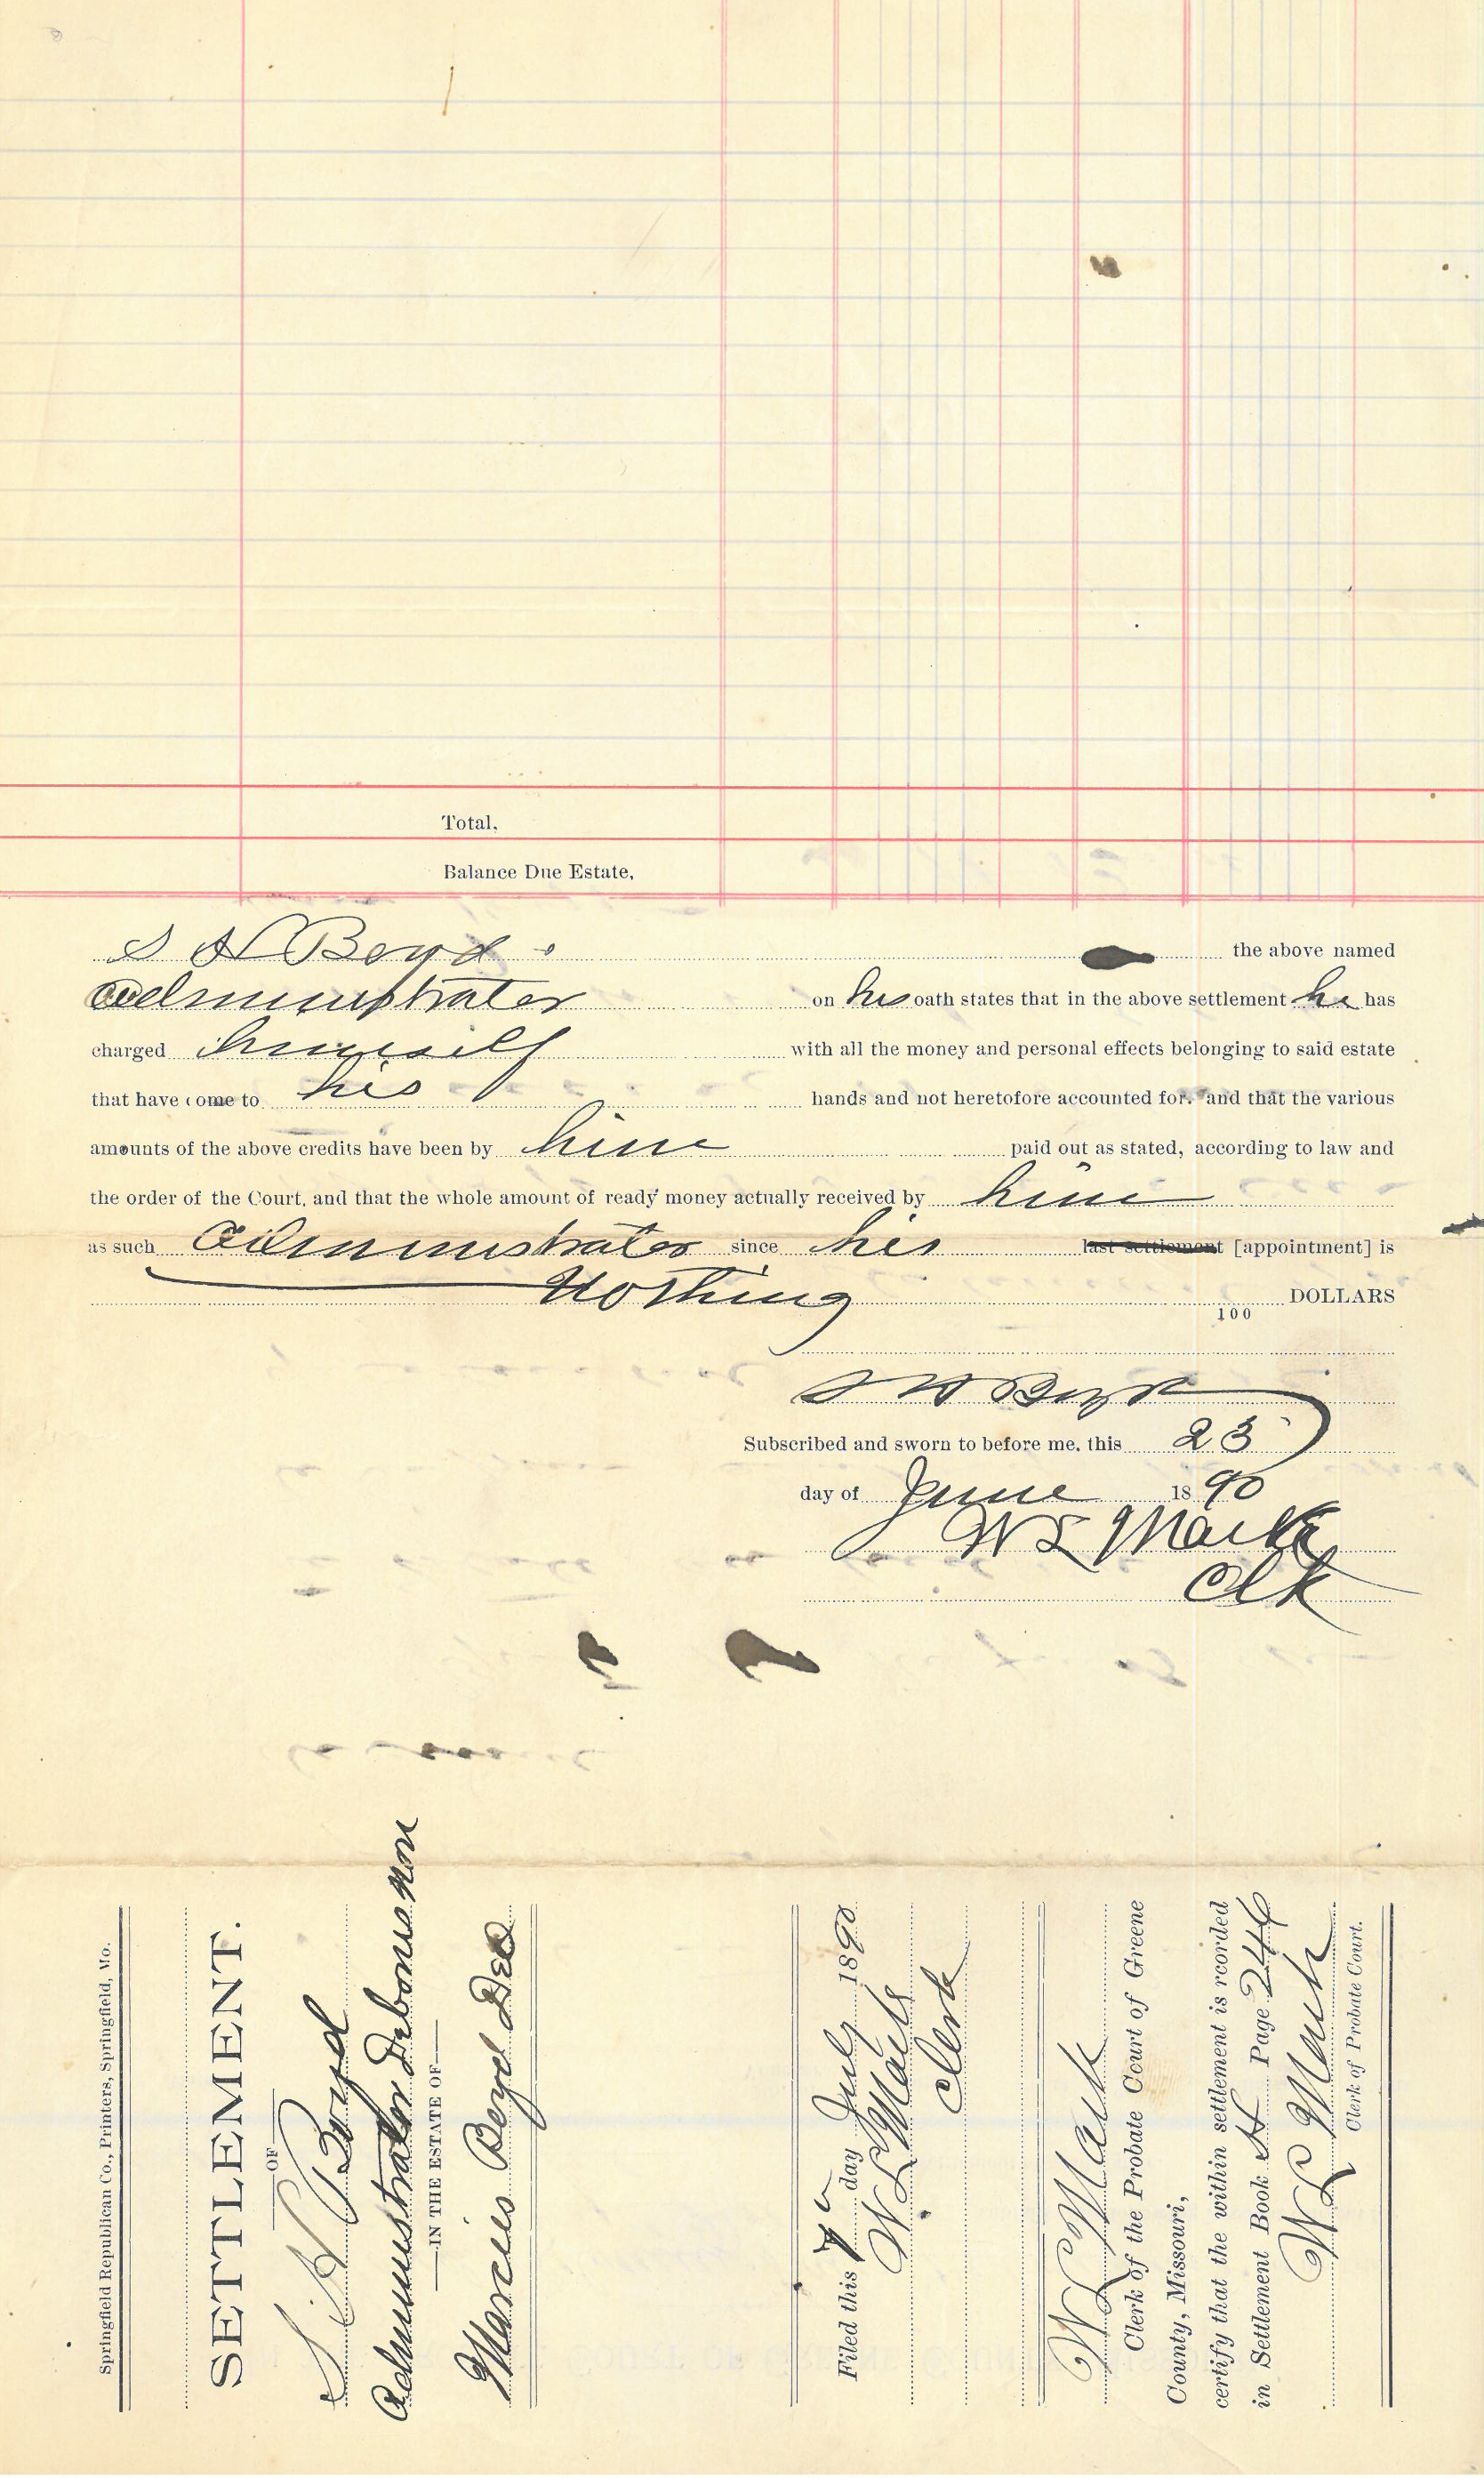 Total,
Balance Due Estate,
S H Boyd the above named
Administrator on his oath states that in the above settlement he has
charged himself with all the money and personal effects belonging to said estate
that have come to his hands and not heretofore accounted for, and that the various
amounts of the above credits have been by him paid out as stated, according to law and
the order of the Court, and that the whole amount of ready money actually received by him
as such Administrator since his last settlement [appointment] is
Nothing DOLLARS
100
S H Boyd
Subscribed and sworn to before me, this 23
day of June 1890
W L Mark
Clk
Springfield Republican Co., Printers, Springfield, Mo.
SETTLEMENT.
OF
S. H Boyd
Administrator Debonus non
IN THE ESTATE OF
Marcus Boyd Decd
Filed this 7 day July 1890
W L Mark
Clerk
W L Mark
Clerk of the Probate Court of Greene
County, Missouri,
certify that the within settlement is rcorded
in Settlement Book H Page 246
W L Mark
Clerk of Probate Court.